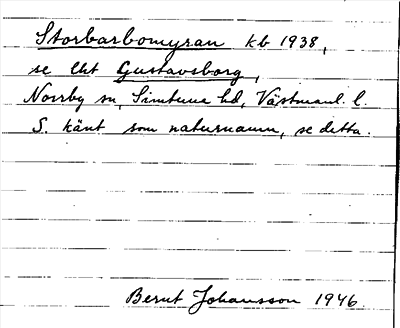 Storbarbomyran kb 1938,
se lht Gustavsborg,
Norrby sn, Simtuna hd, Västmanl. l.
S. känt som naturnamn, se detta.
Bernt Johansson 1946.